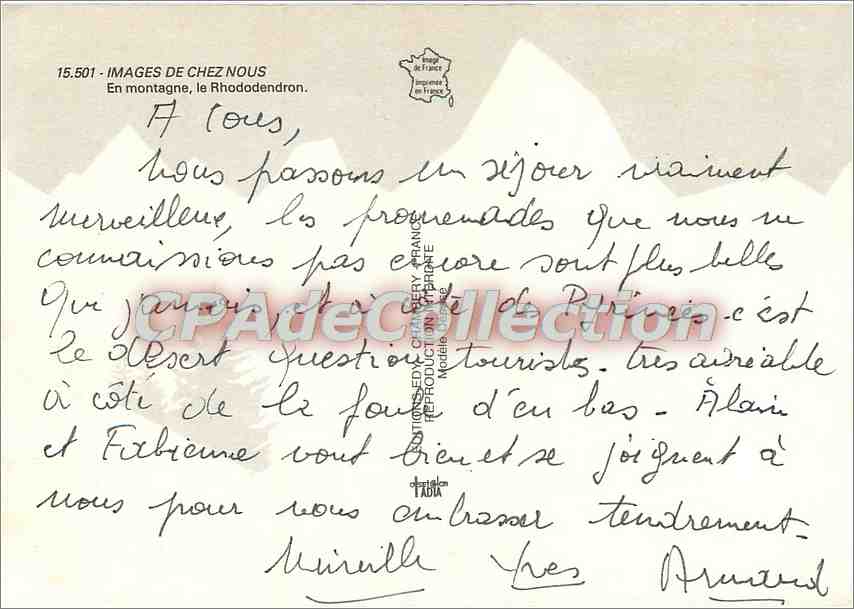 15.501 - IMAGES DE CHEZ NOUS
En montagne, le Rhododendron.
Image
de France
Imprimée
en France
A tous,
Nous passons un séjour vraiment
merveilleux, les promenades que nous ne
connaissions pas encore sont plus belles
que jamais, et à côté des Pyrénées c'est
le désert question touristes. très agréable
à côté de la foule d'en bas - Alain
et Fabienne vont bien et se joignent à
nous pour vous embrasser tendrement -
Mireille Yves Armand
EDITIONS EDY - CHAMBÉRY - FRANCE
REPRODUCTION INTERDITE
Modèle Déposé
TADIA
CPAdeCollection